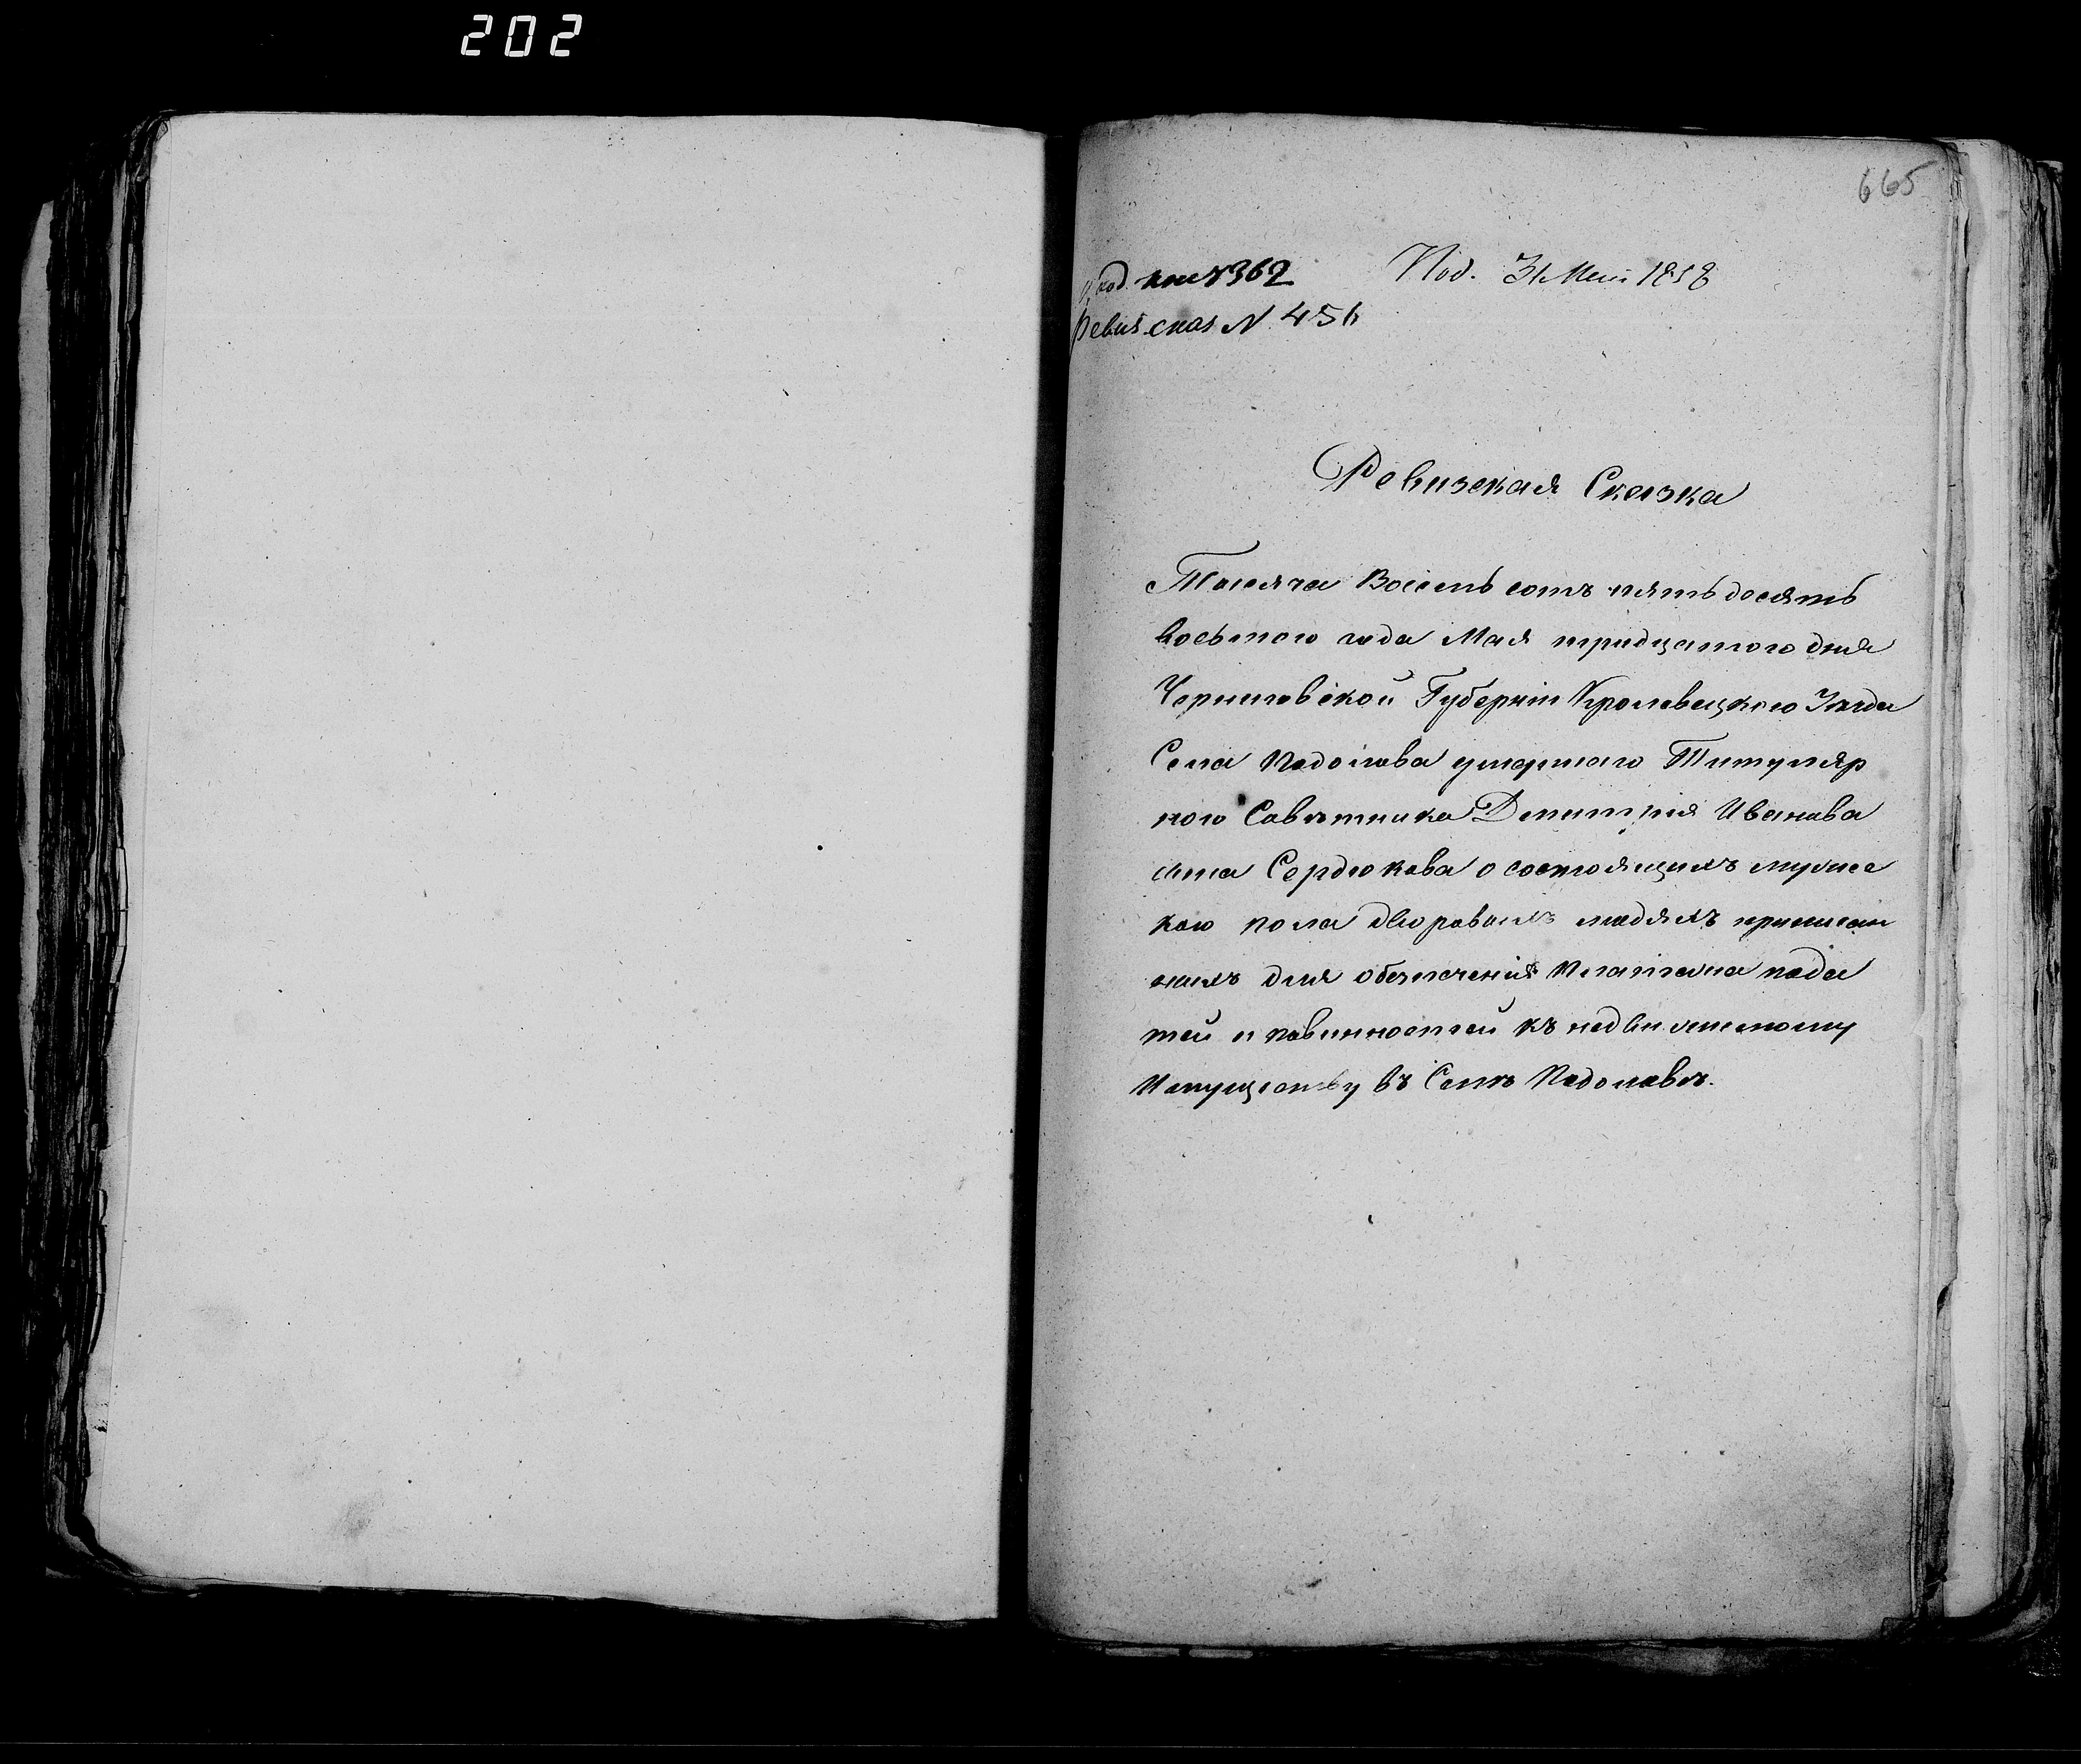 202
665
Под. 31 Мая 1858
Ревиз. сказ N 456
Ревизская Сказка
Тысяча Восемь сотъ пять досятъ
восьмого года Мая тридцатого дня
Черниговской Губерніи Кролевецкого Уѣзда
Села Подолова умершаго Титуляр
ного Совѣтника Дмитрія Иванова
сына Сердюкова о состоящихъ мужес
кого пола дворовыхъ людяхъ приписан
ныхъ для обезпеченія платежа пода
тей и повинностей къ недвижимому
Имуществу въ Селѣ Подоловѣ.